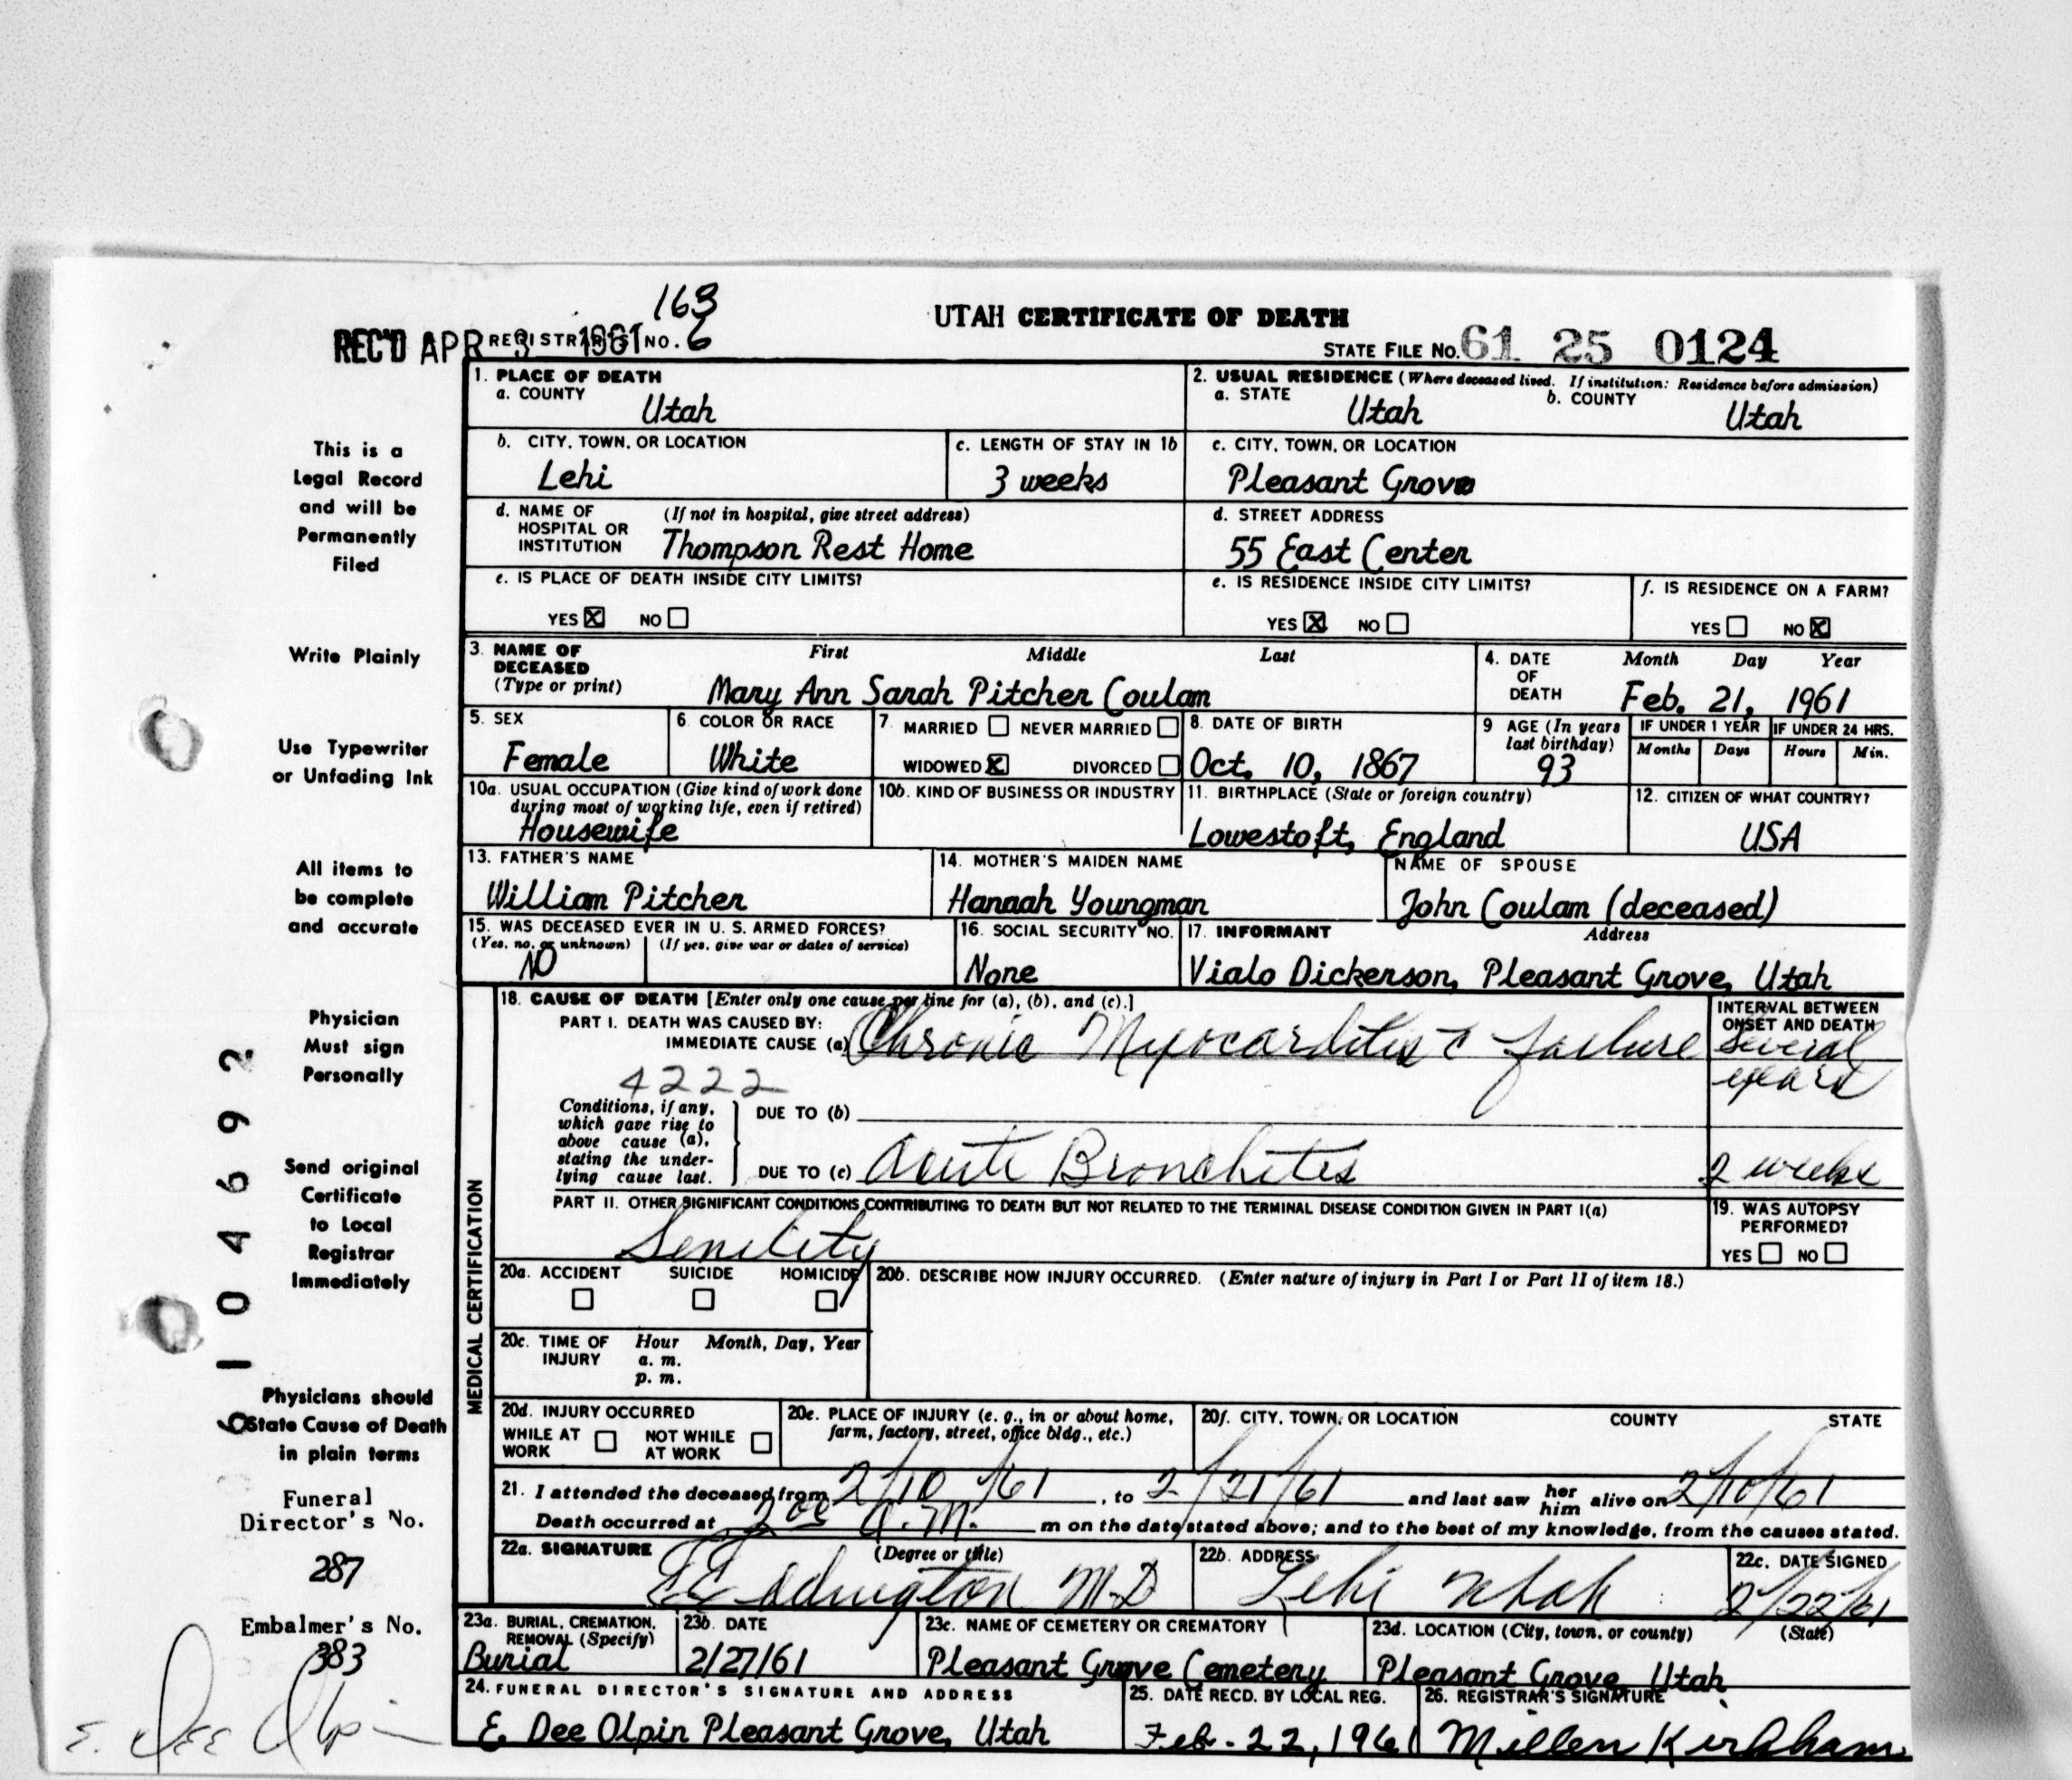 163
UTAH CERTIFICATE OF DEATH
REC'D APR 3 1961 REGISTRAR'S NO. 6
STATE FILE NO. 61 25 0124
1. PLACE OF DEATH
a. COUNTY
Utah
2. USUAL RESIDENCE (Where deceased lived. If institution: Residence before admission)
a. STATE Utah b. COUNTY Utah
b. CITY, TOWN, OR LOCATION
Lehi
c. LENGTH OF STAY IN 1b
3 weeks
c. CITY, TOWN, OR LOCATION
Pleasant Grove
d. NAME OF HOSPITAL OR INSTITUTION (If not in hospital, give street address)
Thompson Rest Home
d. STREET ADDRESS
55 East Center
e. IS PLACE OF DEATH INSIDE CITY LIMITS?
YES X NO
e. IS RESIDENCE INSIDE CITY LIMITS?
YES X NO
f. IS RESIDENCE ON A FARM?
YES NO X
3. NAME OF DECEASED (Type or print) First Middle Last
Mary Ann Sarah Pitcher Coulam
4. DATE OF DEATH Month Day Year
Feb. 21, 1961
5. SEX
Female
6. COLOR OR RACE
White
7. MARRIED NEVER MARRIED
WIDOWED X DIVORCED
8. DATE OF BIRTH
Oct. 10, 1867
9 AGE (In years last birthday)
93
IF UNDER 1 YEAR
Months Days
IF UNDER 24 HRS.
Hours Min.
10a. USUAL OCCUPATION (Give kind of work done during most of working life, even if retired)
Housewife
10b. KIND OF BUSINESS OR INDUSTRY
11. BIRTHPLACE (State or foreign country)
Lowestoft, England
12. CITIZEN OF WHAT COUNTRY?
USA
13. FATHER'S NAME
William Pitcher
14. MOTHER'S MAIDEN NAME
Hannah Youngman
NAME OF SPOUSE
John Coulam (deceased)
15. WAS DECEASED EVER IN U. S. ARMED FORCES?
(Yes, no, or unknown) (If yes, give war or dates of service)
NO
16. SOCIAL SECURITY NO.
None
17. INFORMANT Address
Vialo Dickerson, Pleasant Grove, Utah
MEDICAL CERTIFICATION
18. CAUSE OF DEATH [Enter only one cause per line for (a), (b), and (c).]
PART I. DEATH WAS CAUSED BY:
IMMEDIATE CAUSE (a) Chronic Myocarditis c failure
INTERVAL BETWEEN ONSET AND DEATH
several years
4222
Conditions, if any, which gave rise to above cause (a), stating the underlying cause last.
DUE TO (b)
DUE TO (c) Acute Bronchitis
2 weeks
PART II. OTHER SIGNIFICANT CONDITIONS CONTRIBUTING TO DEATH BUT NOT RELATED TO THE TERMINAL DISEASE CONDITION GIVEN IN PART I(a)
Senility
19. WAS AUTOPSY PERFORMED?
YES NO
20a. ACCIDENT SUICIDE HOMICIDE
20b. DESCRIBE HOW INJURY OCCURRED. (Enter nature of injury in Part I or Part II of item 18.)
20c. TIME OF INJURY Hour Month, Day, Year
a. m.
p. m.
20d. INJURY OCCURRED
WHILE AT WORK NOT WHILE AT WORK
20e. PLACE OF INJURY (e. g., in or about home, farm, factory, street, office bldg., etc.)
20f. CITY, TOWN, OR LOCATION COUNTY STATE
21. I attended the deceased from 2/10/61, to 2/21/61 and last saw her him alive on 2/10/61
Death occurred at 2 00 A.M. m on the date stated above; and to the best of my knowledge, from the causes stated.
22a. SIGNATURE (Degree or title)
Eddington M.D
22b. ADDRESS
Lehi Utah
22c. DATE SIGNED
2/22/61
23a. BURIAL, CREMATION, REMOVAL (Specify)
Burial
23b. DATE
2/27/61
23c. NAME OF CEMETERY OR CREMATORY
Pleasant Grove Cemetery
23d. LOCATION (City, town, or county) (State)
Pleasant Grove Utah
24. FUNERAL DIRECTOR'S SIGNATURE AND ADDRESS
E. Dee Olpin Pleasant Grove, Utah
25. DATE RECD. BY LOCAL REG.
Feb-22, 1961
26. REGISTRAR'S SIGNATURE
Millen Kirkham
This is a
Legal Record
and will be
Permanently
Filed
Write Plainly
Use Typewriter
or Unfading Ink
All items to
be complete
and accurate
Physician
Must sign
Personally
Send original
Certificate
to Local
Registrar
Immediately
Physicians should
State Cause of Death
in plain terms
Funeral
Director's No.
287
Embalmer's No.
383
E. Dee Olpin
6104692